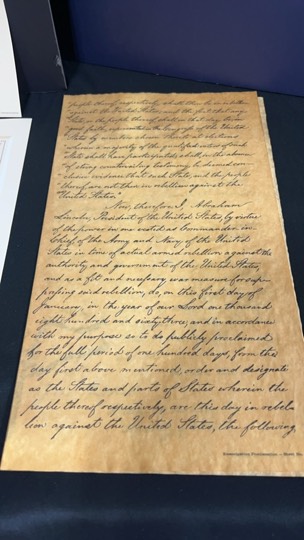 people thereof respectively, shall then be in rebellion
against the United States; and the fact that any
State, or the people thereof, shall on that day be in
good faith represented in the Congress of the United
States by members chosen thereto at elections
wherein a majority of the qualified voters of such
State shall have participated, shall, in the absence
of strong countervailing testimony, be deemed con-
clusive evidence that such State, and the people
thereof, are not then in rebellion against the
United States."
Now, therefore I, Abraham
Lincoln, President of the United States, by virtue
of the power in me vested as Commander-in-
Chief, of the Army and Navy of the United
States in time of actual armed rebellion against the
authority and government of the United States,
and as a fit and necessary war measure for sup-
pressing said rebellion, do, on this first day of
January, in the year of our Lord one thousand
eight hundred and sixty three, and in accordance
with my purpose so to do publicly proclaimed
for the full period of one hundred days, from the
day first above mentioned, order and designate
as the States and parts of States wherein the
people thereof respectively, are this day in rebel-
lion against the United States, the following,
Emancipation Proclamation